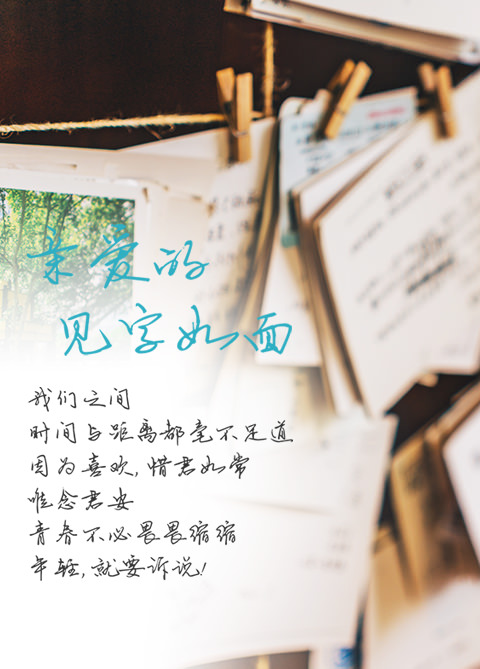 亲爱的
见字如面
我们之间
时间与距离都毫不足道
因为喜欢,惜君如常
唯念君安
青春不必畏畏缩缩
年轻,就要诉说!